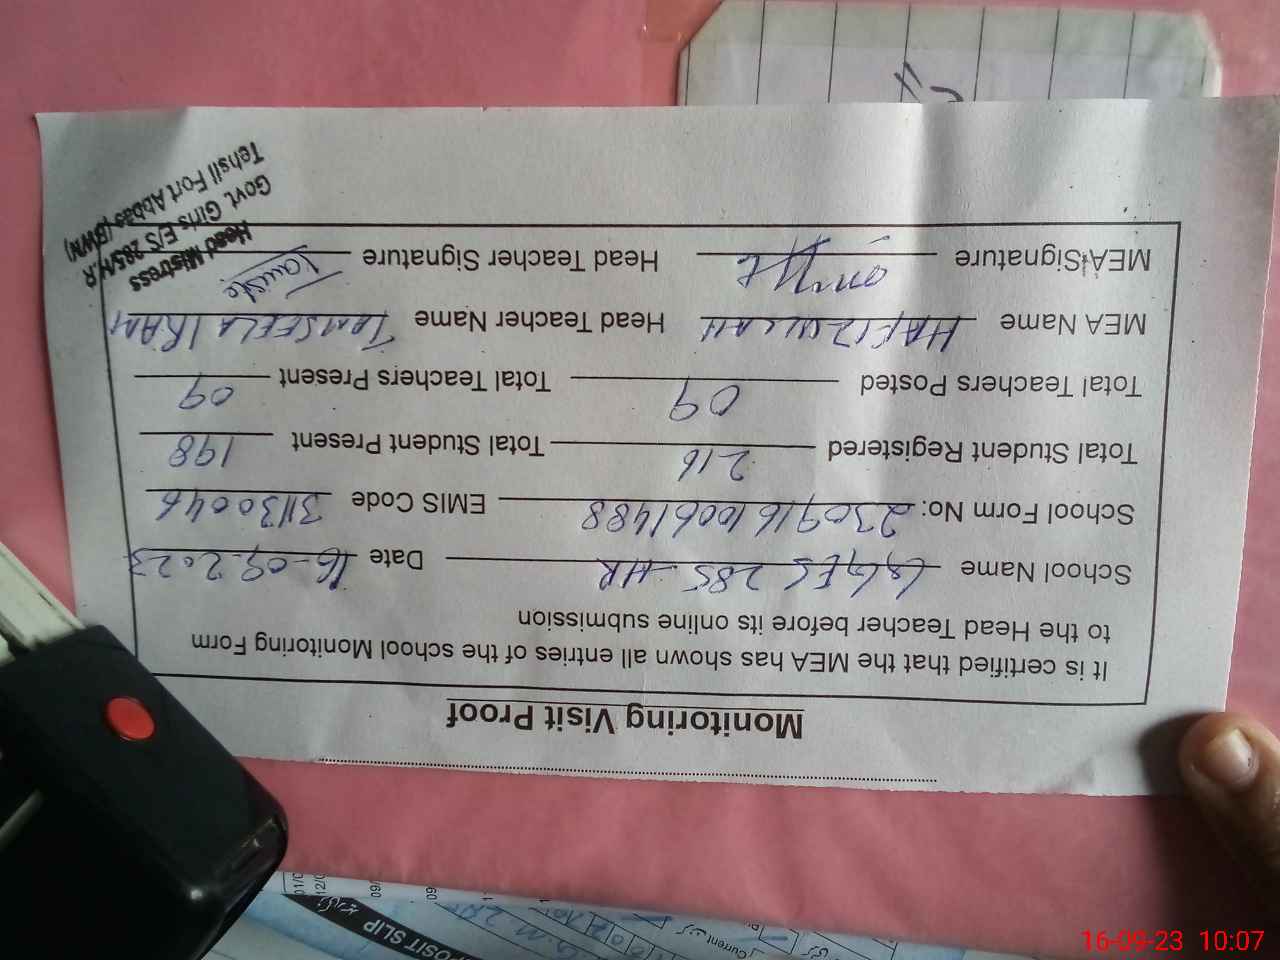 Monitoring Visit Proof
It is certified that the MEA has shown all entries of the school Monitoring Form
to the Head Teacher before its online submission
School Name GGES 285-HR Date 16-09-2023
School Form No: 23091610061488 EMIS Code 31130046
Total Student Registered 216 Total Student Present 198
Total Teachers Posted 09 Total Teachers Present 09
MEA Name HAFIZ ULLAH Head Teacher Name TANSEELA IRAM
MEA Signature Head Teacher Signature
Head Mistress
Govt. Girls E/S 285/H.R
Tehsil Fort Abbas (BWN)
POSIT SLIP
Current
16-09-23 10:07